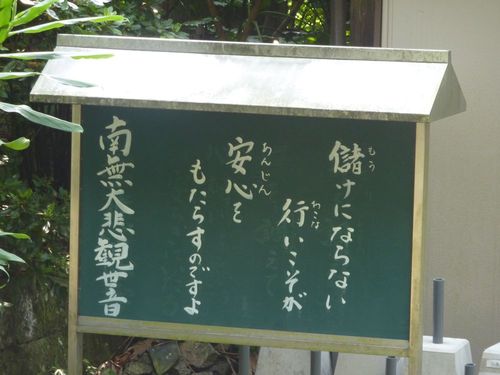 儲けにならない
行いこそが
安心を
もたらすのですよ
南無大悲観世音
もう
おこな
あんじん